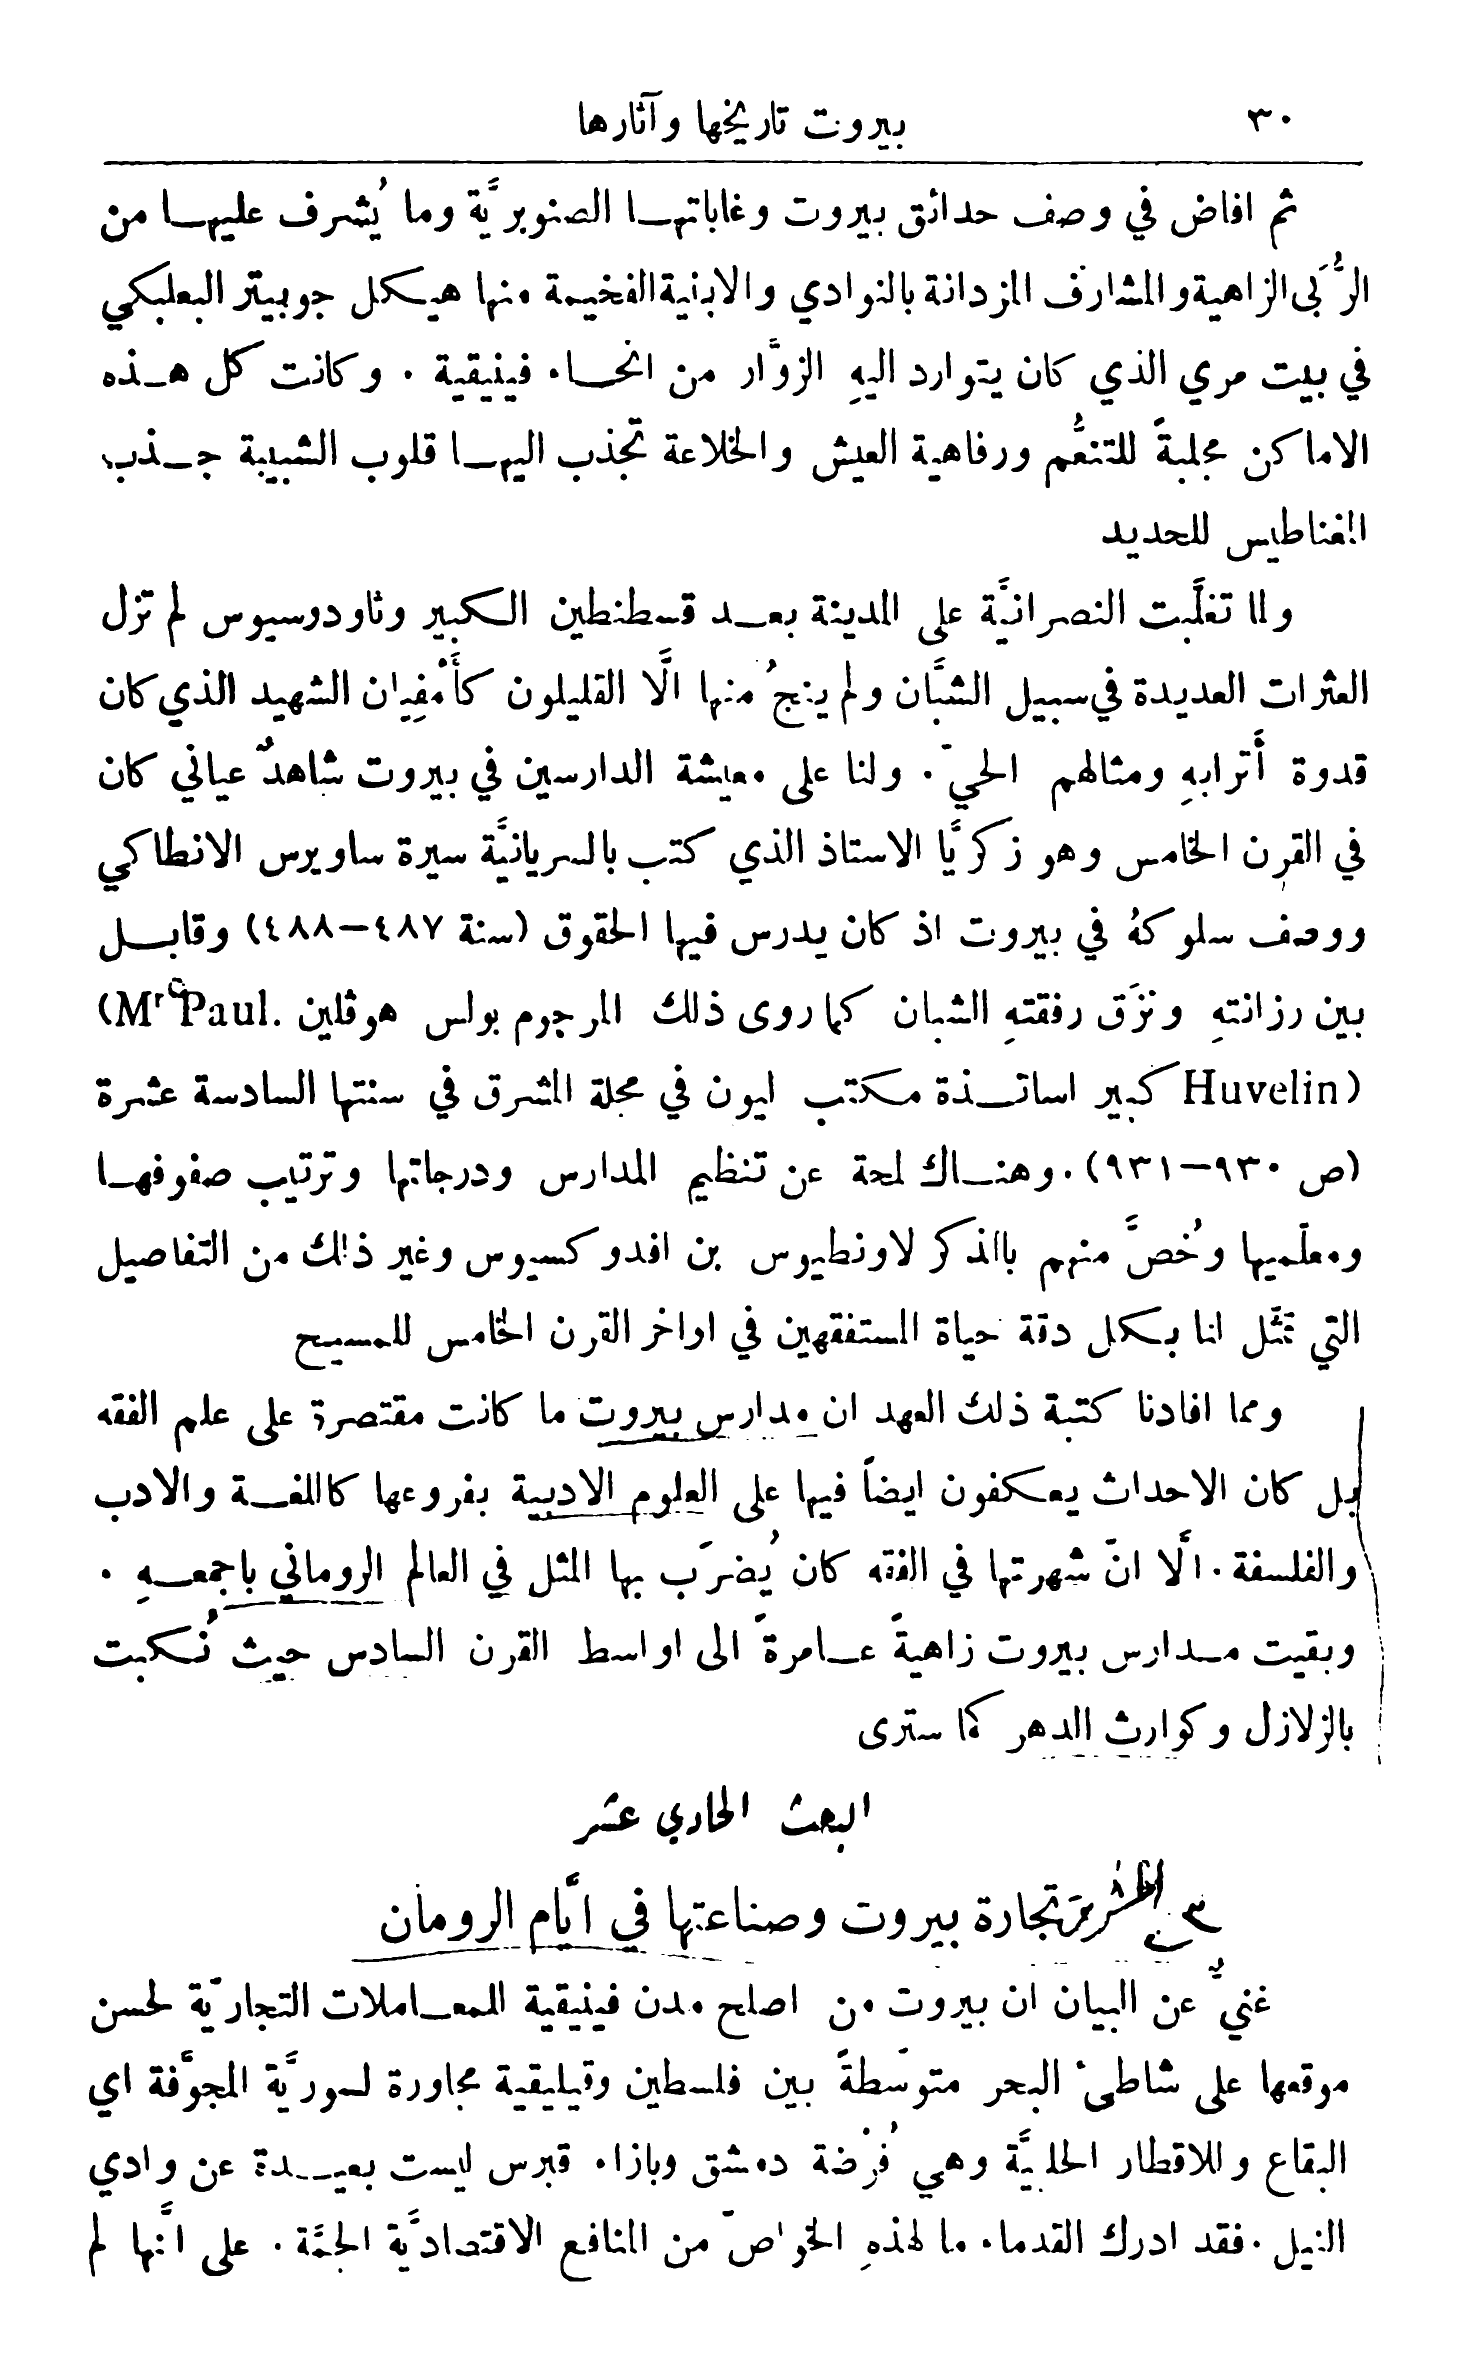 ٣٠ بيروت تاريخها وآثارها
ثم افاض في وصف حدائق بيروت وغاباتهـا الصنوبريَّة وما يُشرف عليهـا من
الرُّبَى الزاهية والمشارف المزدانة بالنوادي والابنية الفخيمة منها هيكل جوبيتر البعلبكي
في بيت مري الذي كان يتوارد اليهِ الزوَّار من انحـاء فينيقية . وكانت كل هـذه
الاماكن مجلبةً للتنعُّم ورفاهية العيش والخلاعة تجذب اليهـا قلوب الشبيبة جـذب
المغناطيس للحديد
ولما تغلَّبت النصرانيَّة على المدينة بعـد قسطنطين الكبير وثاودوسيوس لم تزل
العثرات العديدة في سبيل الشبَّان ولم ينجُ منها الَّا القليلون كأَمْفِيان الشهيد الذي كان
قدوة أَترابهِ ومثالهم الحيّ . ولنا على معيشة الدارسين في بيروت شاهدٌ عياني كان
في القرن الخامس وهو زكريَّا الاستاذ الذي كتب بالسريانيَّة سيرة ساويرس الانطاكي
ووصف سلوكهُ في بيروت اذ كان يدرس فيها الحقوق (سنة ٤٨٧–٤٨٨) وقابـل
بين رزانتهِ ونَزَق رفقتهِ الشبان كما روى ذلك المرحوم بولس هوڤلين (Mʳ Paul.
Huvelin) كبير اساتـذة مكتب ليون في مجلة المشرق في سنتها السادسة عشرة
(ص ٩٣٠–٩٣١) . وهنـاك لمحة عن تنظيم المدارس ودرجاتها وترتيب صفوفهـا
ومعلّميها وخُصَّ منهم بالذكر لاونطيوس بن افدوكسيوس وغير ذلك من التفاصيل
التي تمثّل لنا بكل دقة حياة المستفقهين في اواخر القرن الخامس للمسيح
ومما افادنا كتبة ذلك العهد ان مدارس بيروت ما كانت مقتصرة على علم الفقه
بل كان الاحداث يعكفون ايضاً فيها على العلوم الادبية بفروعها كاللغـة والادب
والفلسفة . الَّا انّ شهرتها في الفقه كان يُضرَب بها المثل في العالم الروماني باجمعـهِ .
وبقيت مـدارس بيروت زاهيةً عـامرةً الى اواسط القرن السادس حيث نُكبت
بالزلازل وكوارث الدهر كما سترى
البحث الحادي عشر
تجارة بيروت وصناعتها في ايَّام الرومان
غنيٌّ عن البيان ان بيروت من اصلح مدن فينيقية للمعـاملات التجاريّة لحسن
موقعها على شاطئ البحر متوسّطةً بين فلسطين وقيليقية مجاورة لسوريَّة المجوَّفة اي
البقاع وللاقطار الحلبيَّة وهي فُرْضة دمشق وبازاء قبرس ليست بعيـدة عن وادي
النيل . فقد ادرك القدماء ما لهذهِ الخواصّ من المنافع الاقتصاديَّة الجمَّة . على انَّها لم